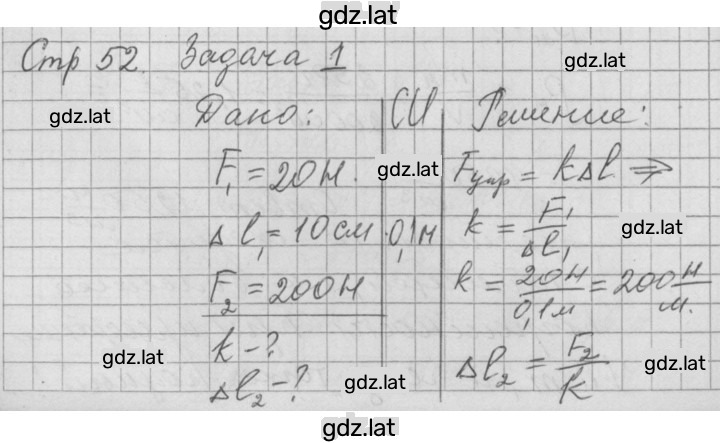 gdz.lat
Стр 52. Задача 1
gdz.lat
gdz.lat
Дано:
СИ
Решение:
F₁ = 20 Н.
gdz.lat
Fупр = kΔl ⇒
Δl₁ = 10 см
0,1 м
k = F₁/Δl₁
gdz.lat
F₂ = 200 Н
k = 20 Н/0,1 м = 200 Н/м.
k - ?
gdz.lat
Δl₂ - ?
gdz.lat
Δl₂ = F₂/k
gdz.lat
gdz.lat